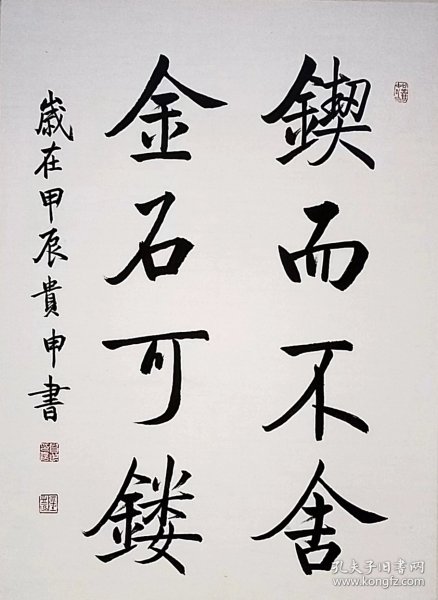 鍥而不舍
金石可镂
歲在甲辰貴申書
孔夫子旧书网
www.kongfz.com